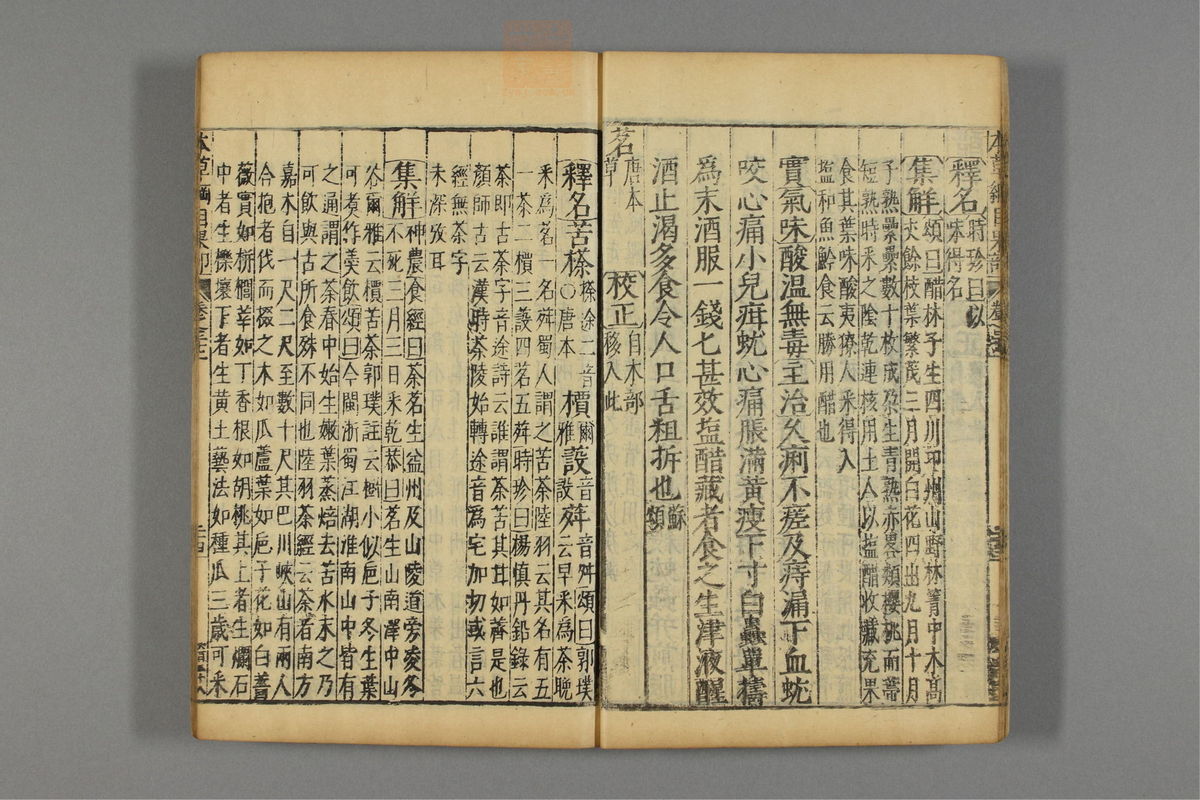 本草綱目果部
釋名時珍曰以味得名
集解頌曰醋林子生四川卭州山野林箐中木高丈餘枝葉繁茂三月開白花四出九月十月
子熟纍纍數十枚成朶生青熟赤畧類櫻桃而蒂
短熟時采之陰乾連核用土人以塩醋收藏充果
食其葉味酸夷獠人采得入
塩和魚鱠食云勝用醋也
實氣味酸温無毒主治久痢不瘥及痔漏下血蚘
咬心痛小兒疳蚘心痛脹滿黄瘦下寸白蟲單擣
爲末酒服一錢匕甚效塩醋藏者食之生津液醒
酒止渴多食令人口舌粗拆也蘇頌
茗唐本草 校正自木部移入此
釋名苦㯶㯶途二音○唐本檟爾雅蔎音設荈音舛頌曰郭璞云早采爲茶晚
采爲茗一名荈蜀人謂之苦茶陸羽云其名有五
一茶二檟三蔎四茗五荈時珍曰楊慎丹鉛錄云
茶即古荼字音途詩云誰謂荼苦其甘如薺是也
顔師古云漢時荼陵始轉途音爲宅加切或言六
經無茶字
未深攷耳
集解神農食經曰茶茗生益州及山陵道旁凌冬不死三月三日采乾恭曰茗生山南澤中山
谷爾雅云檟苦荼郭璞註云樹小似巵子冬生葉
可煮作羮飲頌曰今閩浙蜀江湖淮南山中皆有
之通謂之茶春中始生嫩葉蒸焙去苦水末之乃
可飲與古所食殊不同也陸羽茶經云茶者南方
嘉木自一尺二尺至數十尺其巴川峽山有兩人
合抱者伐而掇之木如瓜蘆葉如巵子花如白薔
薇實如栟櫚莖如丁香根如胡桃其上者生爛石
中者生櫟壤下者生黄土藝法如種瓜三歲可采
本草綱目果部